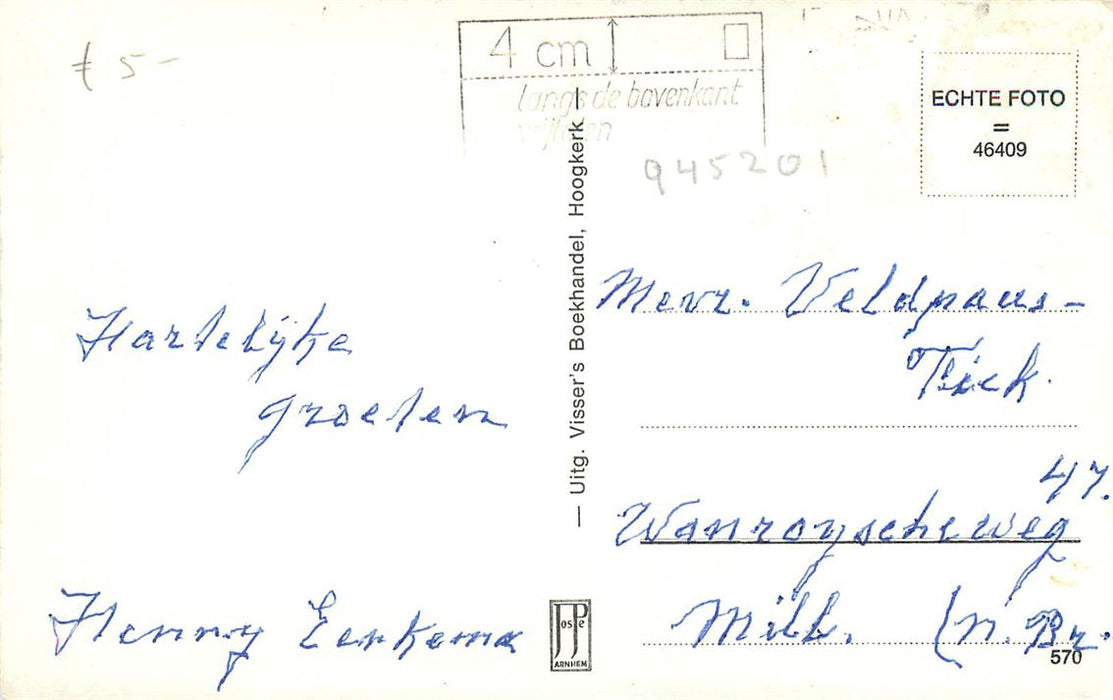 € 5-
4 cm
langs de bovenkant
vrijlaten
ECHTE FOTO
=
46409
945201
— Uitg. Visser's Boekhandel, Hoogkerk —
Hartelijke
groeten
Henny Eerkema
Mevr. Veldpaus-
47.
Wanroyscheweg
Mill. (N. Br.
JosPé
ARNHEM
570